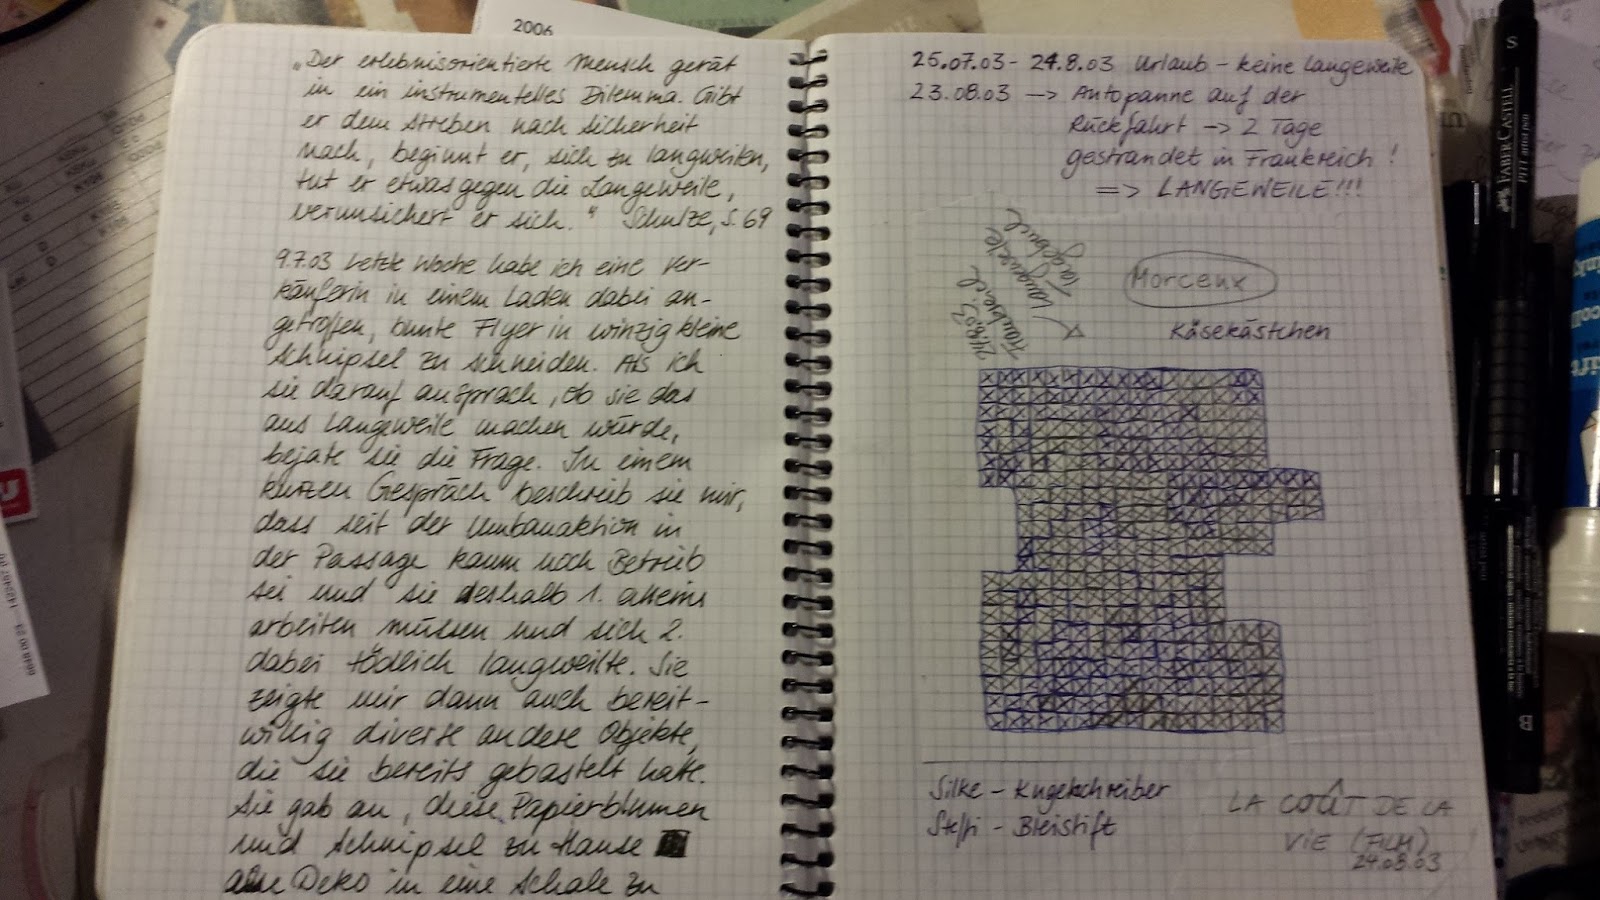 2006
„Der erlebnisorientierte Mensch gerät
in ein instrumentelles Dilemma. Gibt
er dem Streben nach Sicherheit
nach, beginnt er, sich zu langweilen,
tut er etwas gegen die Langeweile,
verunsichert er sich." Schulze, S. 69
9.7.03 Letzte Woche habe ich eine Ver-
käuferin in einem Laden dabei an-
getroffen, bunte Flyer in winzig kleine
Schnipsel zu schneiden. Als ich
sie darauf ansprach, ob sie das
aus Langeweile machen würde,
bejate sie die Frage. In einem
kurzen Gespräch beschrieb sie mir,
dass seit der Umbauaktion in
der Passage kaum noch Betrieb
sei und sie deshalb 1. alleine
arbeiten müssen und sich 2.
dabei tödlich langweilte. Sie
zeigte mir dann auch bereit-
willig diverse andere Objekte,
die sie bereits gebastelt hatte.
Sie gab an, diese Papierblumen
und Schnipsel zu Hause
als Deko in eine Schale zu
25.07.03 - 24.8.03 Urlaub - keine Langeweile
23.08.03 —> Autopanne auf der
Rückfahrt —> 2 Tage
gestrandet in Frankreich!
=> LANGEWEILE!!!
Langeweile
Tagebuch
Morceux
Käsekästchen
Silke - Kugelschreiber
Steffi - Bleistift
LA COÛT DE LA
VIE (FILM)
24.08.03
S
FABER-CASTELL
PITT artist pen
B